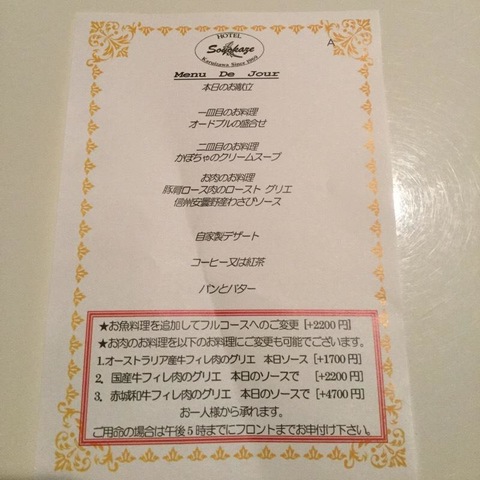 HOTEL
Soyokaze
Karuizawa Since 1992
A
Menu De Jour
本日のお献立
一皿目のお料理
オードブルの盛合せ
二皿目のお料理
かぼちゃのクリームスープ
お肉のお料理
豚肩ロース肉のロースト グリエ
信州安曇野産わさびソース
自家製デザート
コーヒー又は紅茶
パンとバター
★お魚料理を追加してフルコースへのご変更 [+2200円]
★お肉のお料理を以下のお料理にご変更も可能でございます。
1.オーストラリア産牛フィレ肉のグリエ 本日ソース [+1700円]
2. 国産牛フィレ肉のグリエ 本日のソースで [+2200円]
3. 赤城和牛フィレ肉のグリエ 本日のソースで [+4700円]
お一人様から承れます。
ご用命の場合は午後5時までにフロントまでお申付け下さい。